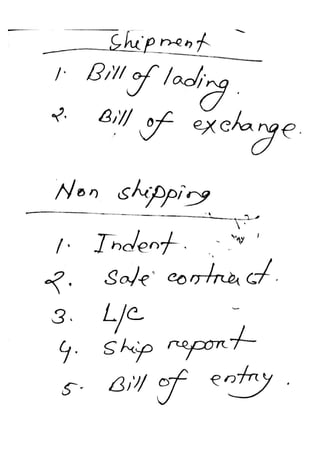 Shipment
1. Bill of lading.
2. Bill of exchange.
Non shipping
1. Indent.
2. Sale contract.
3. L/C
4. Ship report
5. Bill of entry.